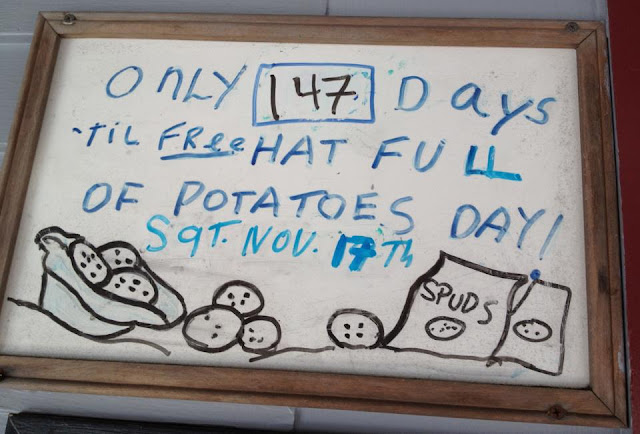 ONLY 147 Days
'TIL FRee HAT FULL
OF POTATOES DAY!
SAT. NOV. 17TH
SPUDS